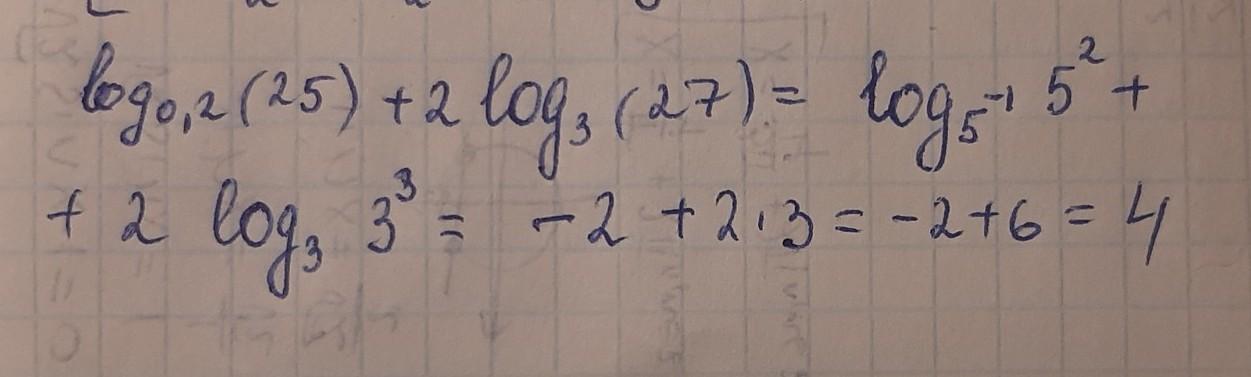 log₀,₂(25) + 2 log₃(27) = log₅⁻¹ 5² +
+ 2 log₃ 3³ = -2 + 2·3 = -2+6 = 4